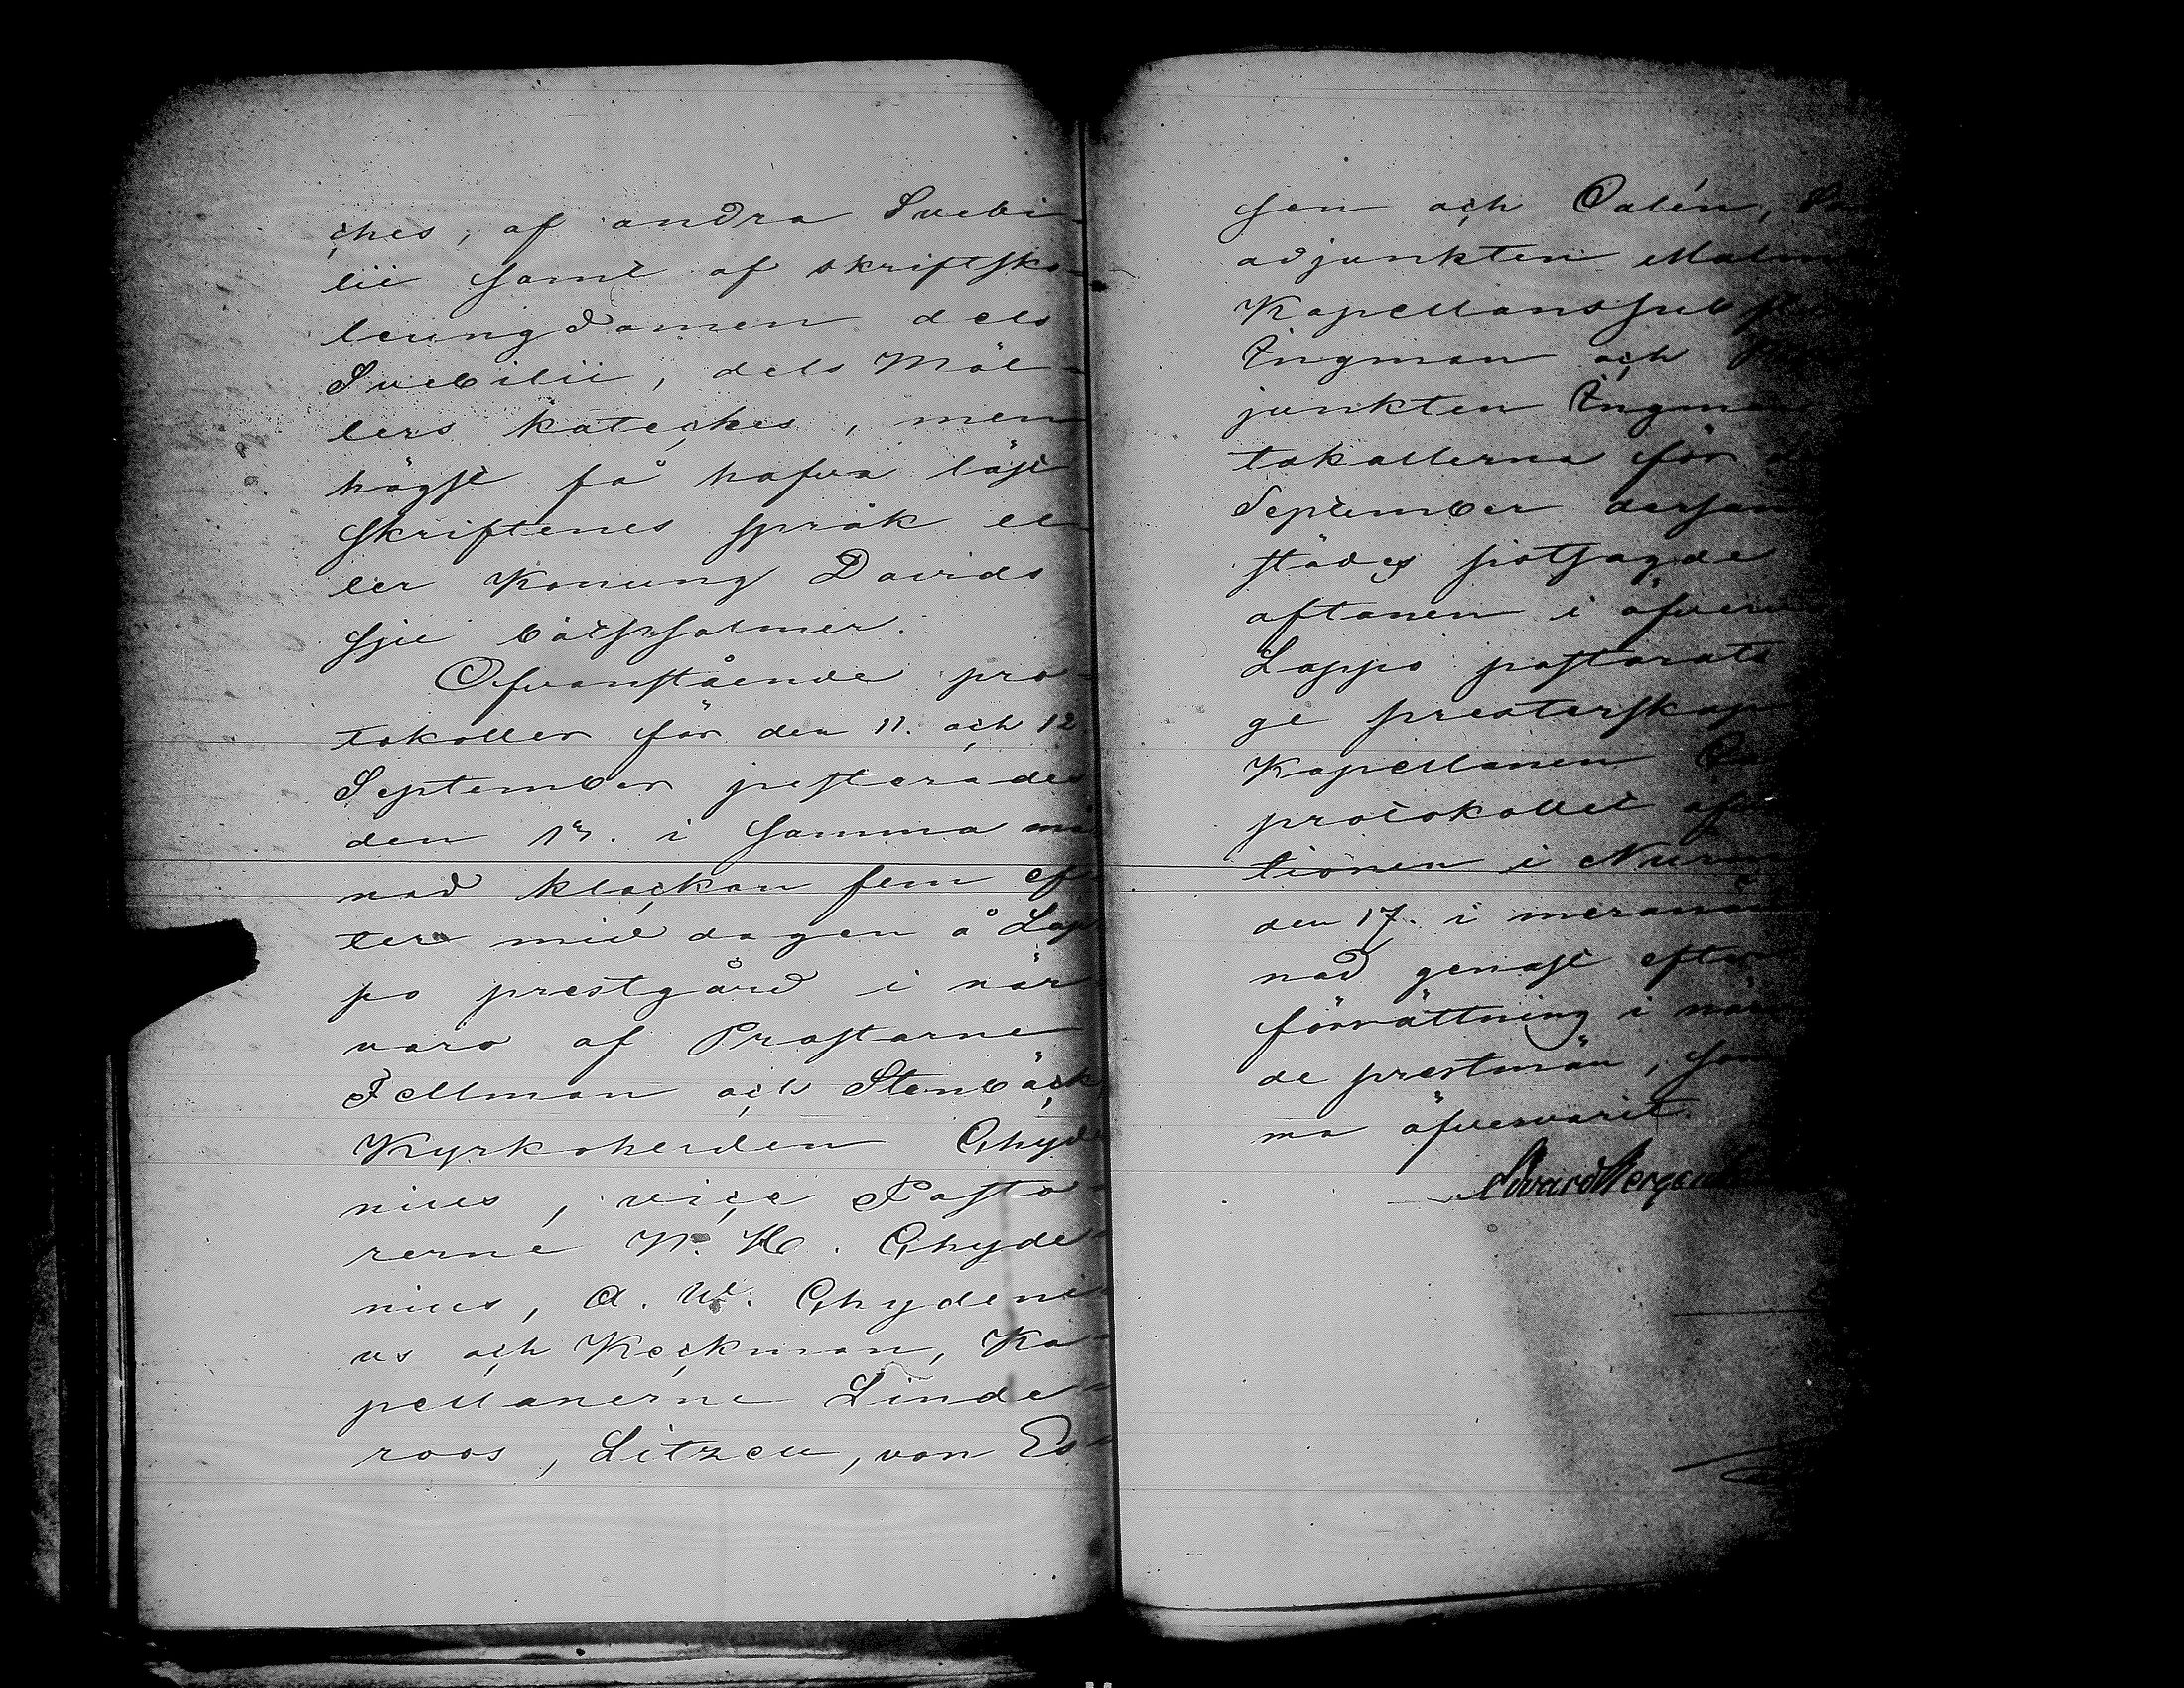 ches, af andra Svebi-
lii samt af skriftsko-
leungdomen dels
Svebilii, dels Möl-
lers kateches, men
högst få hafva läst
skriftenes språk el-
ler Konung Davids
sju botpsalmer.
Ofvanstående pro-
tokoller för den 11. och 12
September justerades
den 13. i samma må
nad klockan fem ef-
ter middagen å Lap
po prestgård i när
varo af Prostarne
Fellman och Stenbäck
Kyrkoherden Chyde
nius, vice Pasto-
rerne N. H. Chyde-
nius, A. W. Chydeni-
us och Keckman, Ka-
pellanerne Linde-
roos, Litzell, von Es-
sen och Calén,
adjunkten Malm
Kapellanssub
Ingman och
junkten Ingman
tokollerna för
September
städes
aftonen i öfver
Lappo pastorats
ge presterskap
Kapellanen
protokollet
tionen i Nurm
den 17. i
nad genast efter
förrättning i när
de prestmän, som
ma öfvervarit.